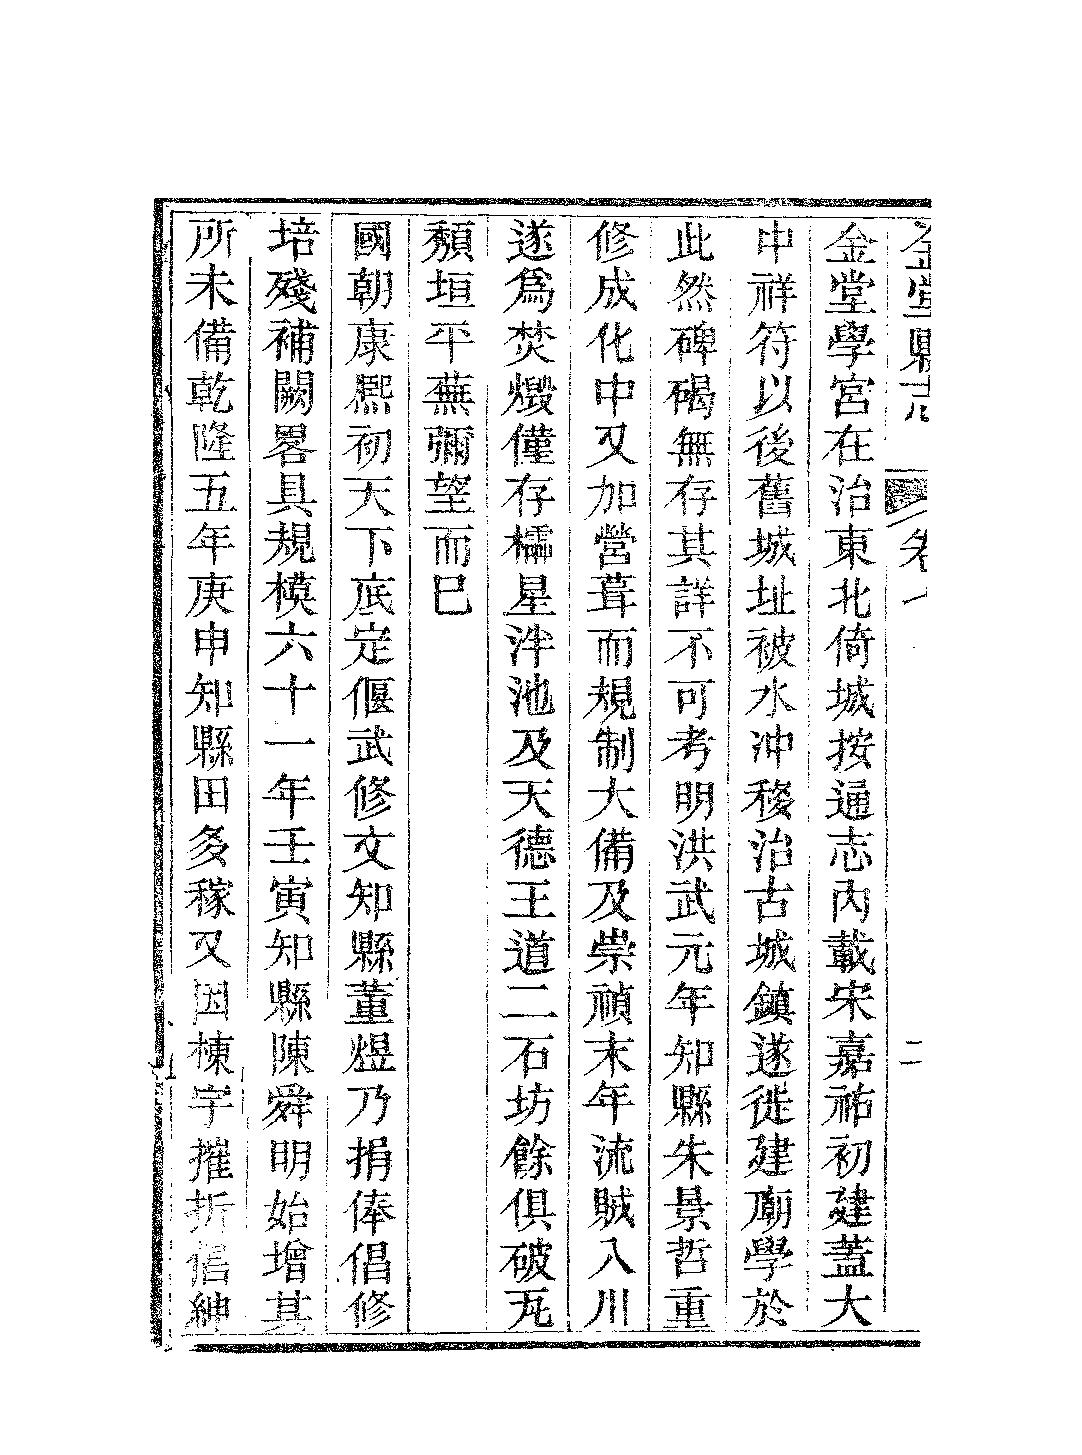 金堂縣志 卷 二
金堂學宮在治東北倚城按通志內載宋嘉祐初建蓋大
中祥符以後舊城址被水沖移治古城鎮遂徙建廟學於
此然碑碣無存其詳不可考明洪武元年知縣朱景哲重
修成化中又加營葺而規制大備及崇禎末年流賊入川
遂爲焚燬僅存櫺星泮池及天德王道二石坊餘俱破瓦
頽垣平蕪彌望而巳
國朝康熈初天下底定偃武修文知縣董煜乃捐俸倡修
培殘補闕畧具規模六十一年壬寅知縣陳舜明始增其
所未備乾隆五年庚申知縣田多稼又因棟宇摧折偕紳